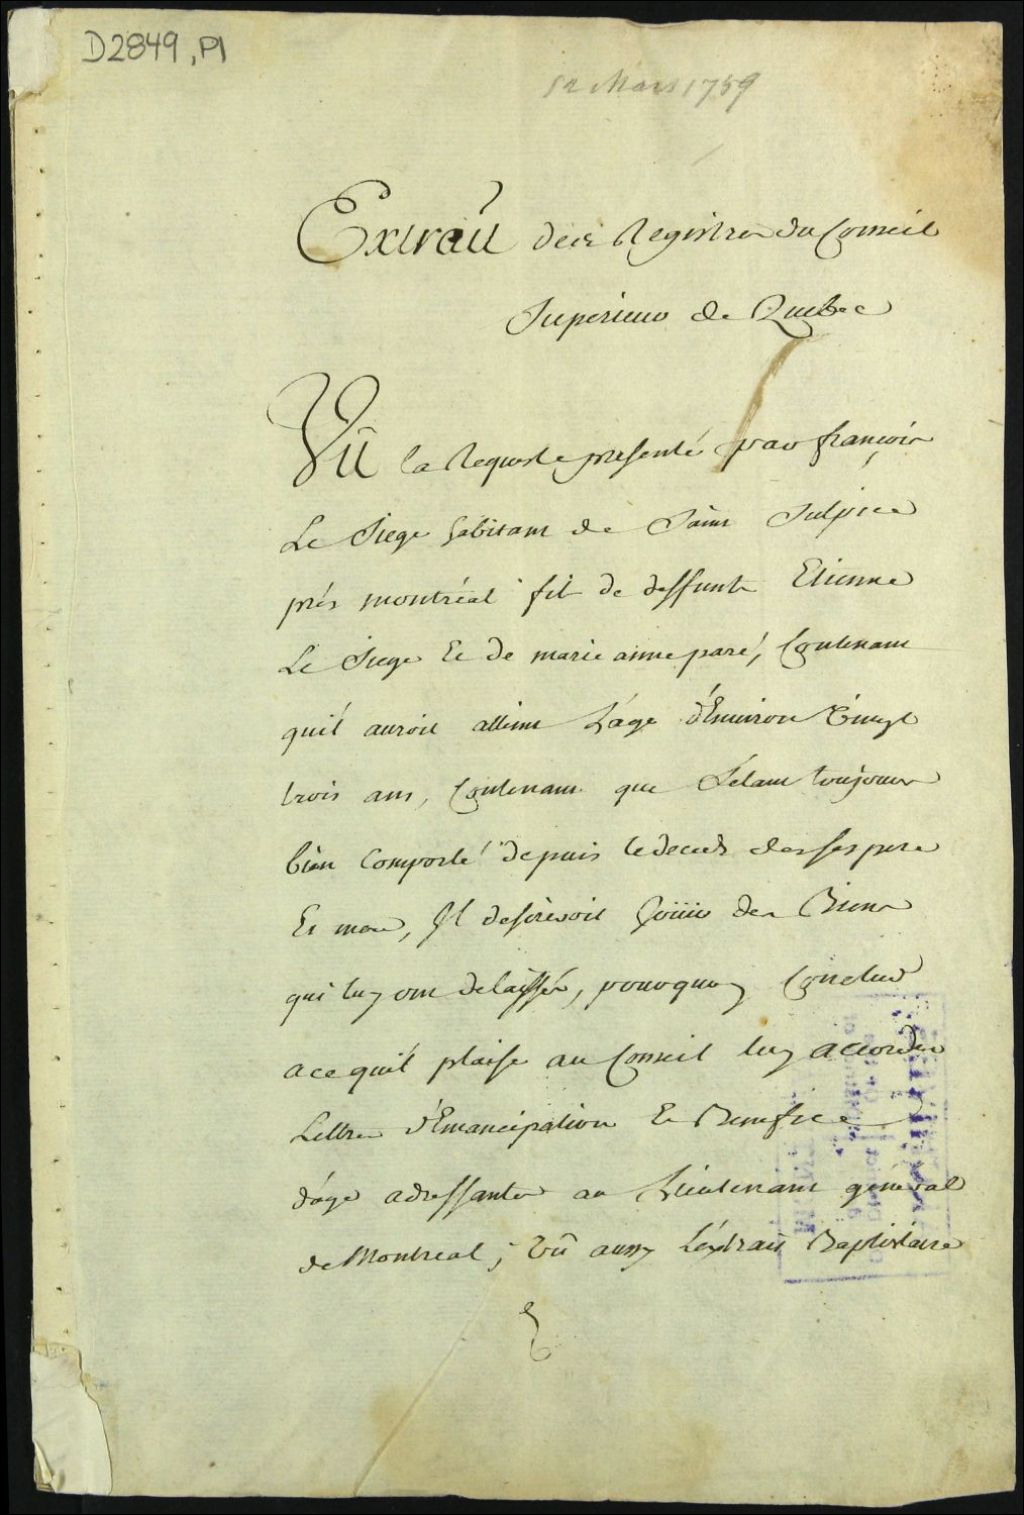 D2849, P1
12 Mars 1759
Extrait des Registres du Conseil
Superieur de Quebec
Vû la Requeste presenté par françois
Le Siege habitant de Saint Sulpice
prés montréal fils de deffunts Etienne
Le Siege Et de marie anne paré, Contenant
quil auroit atteint L'age d'Environ Vingt
trois ans, Contenant que s'etant toujours
bien Comporté depuis le deceds de ses pere
Et mere, Il desireroit joüir des Biens
qui luy ont delaissés, pourquoy Conclud
a ce quil plaise au Conseil luy accorder
Lettres d'Emancipation Et Benefice
d'age adressantes au Lieutenant general
de Montreal; Vû aussy L'extrait Baptistaire